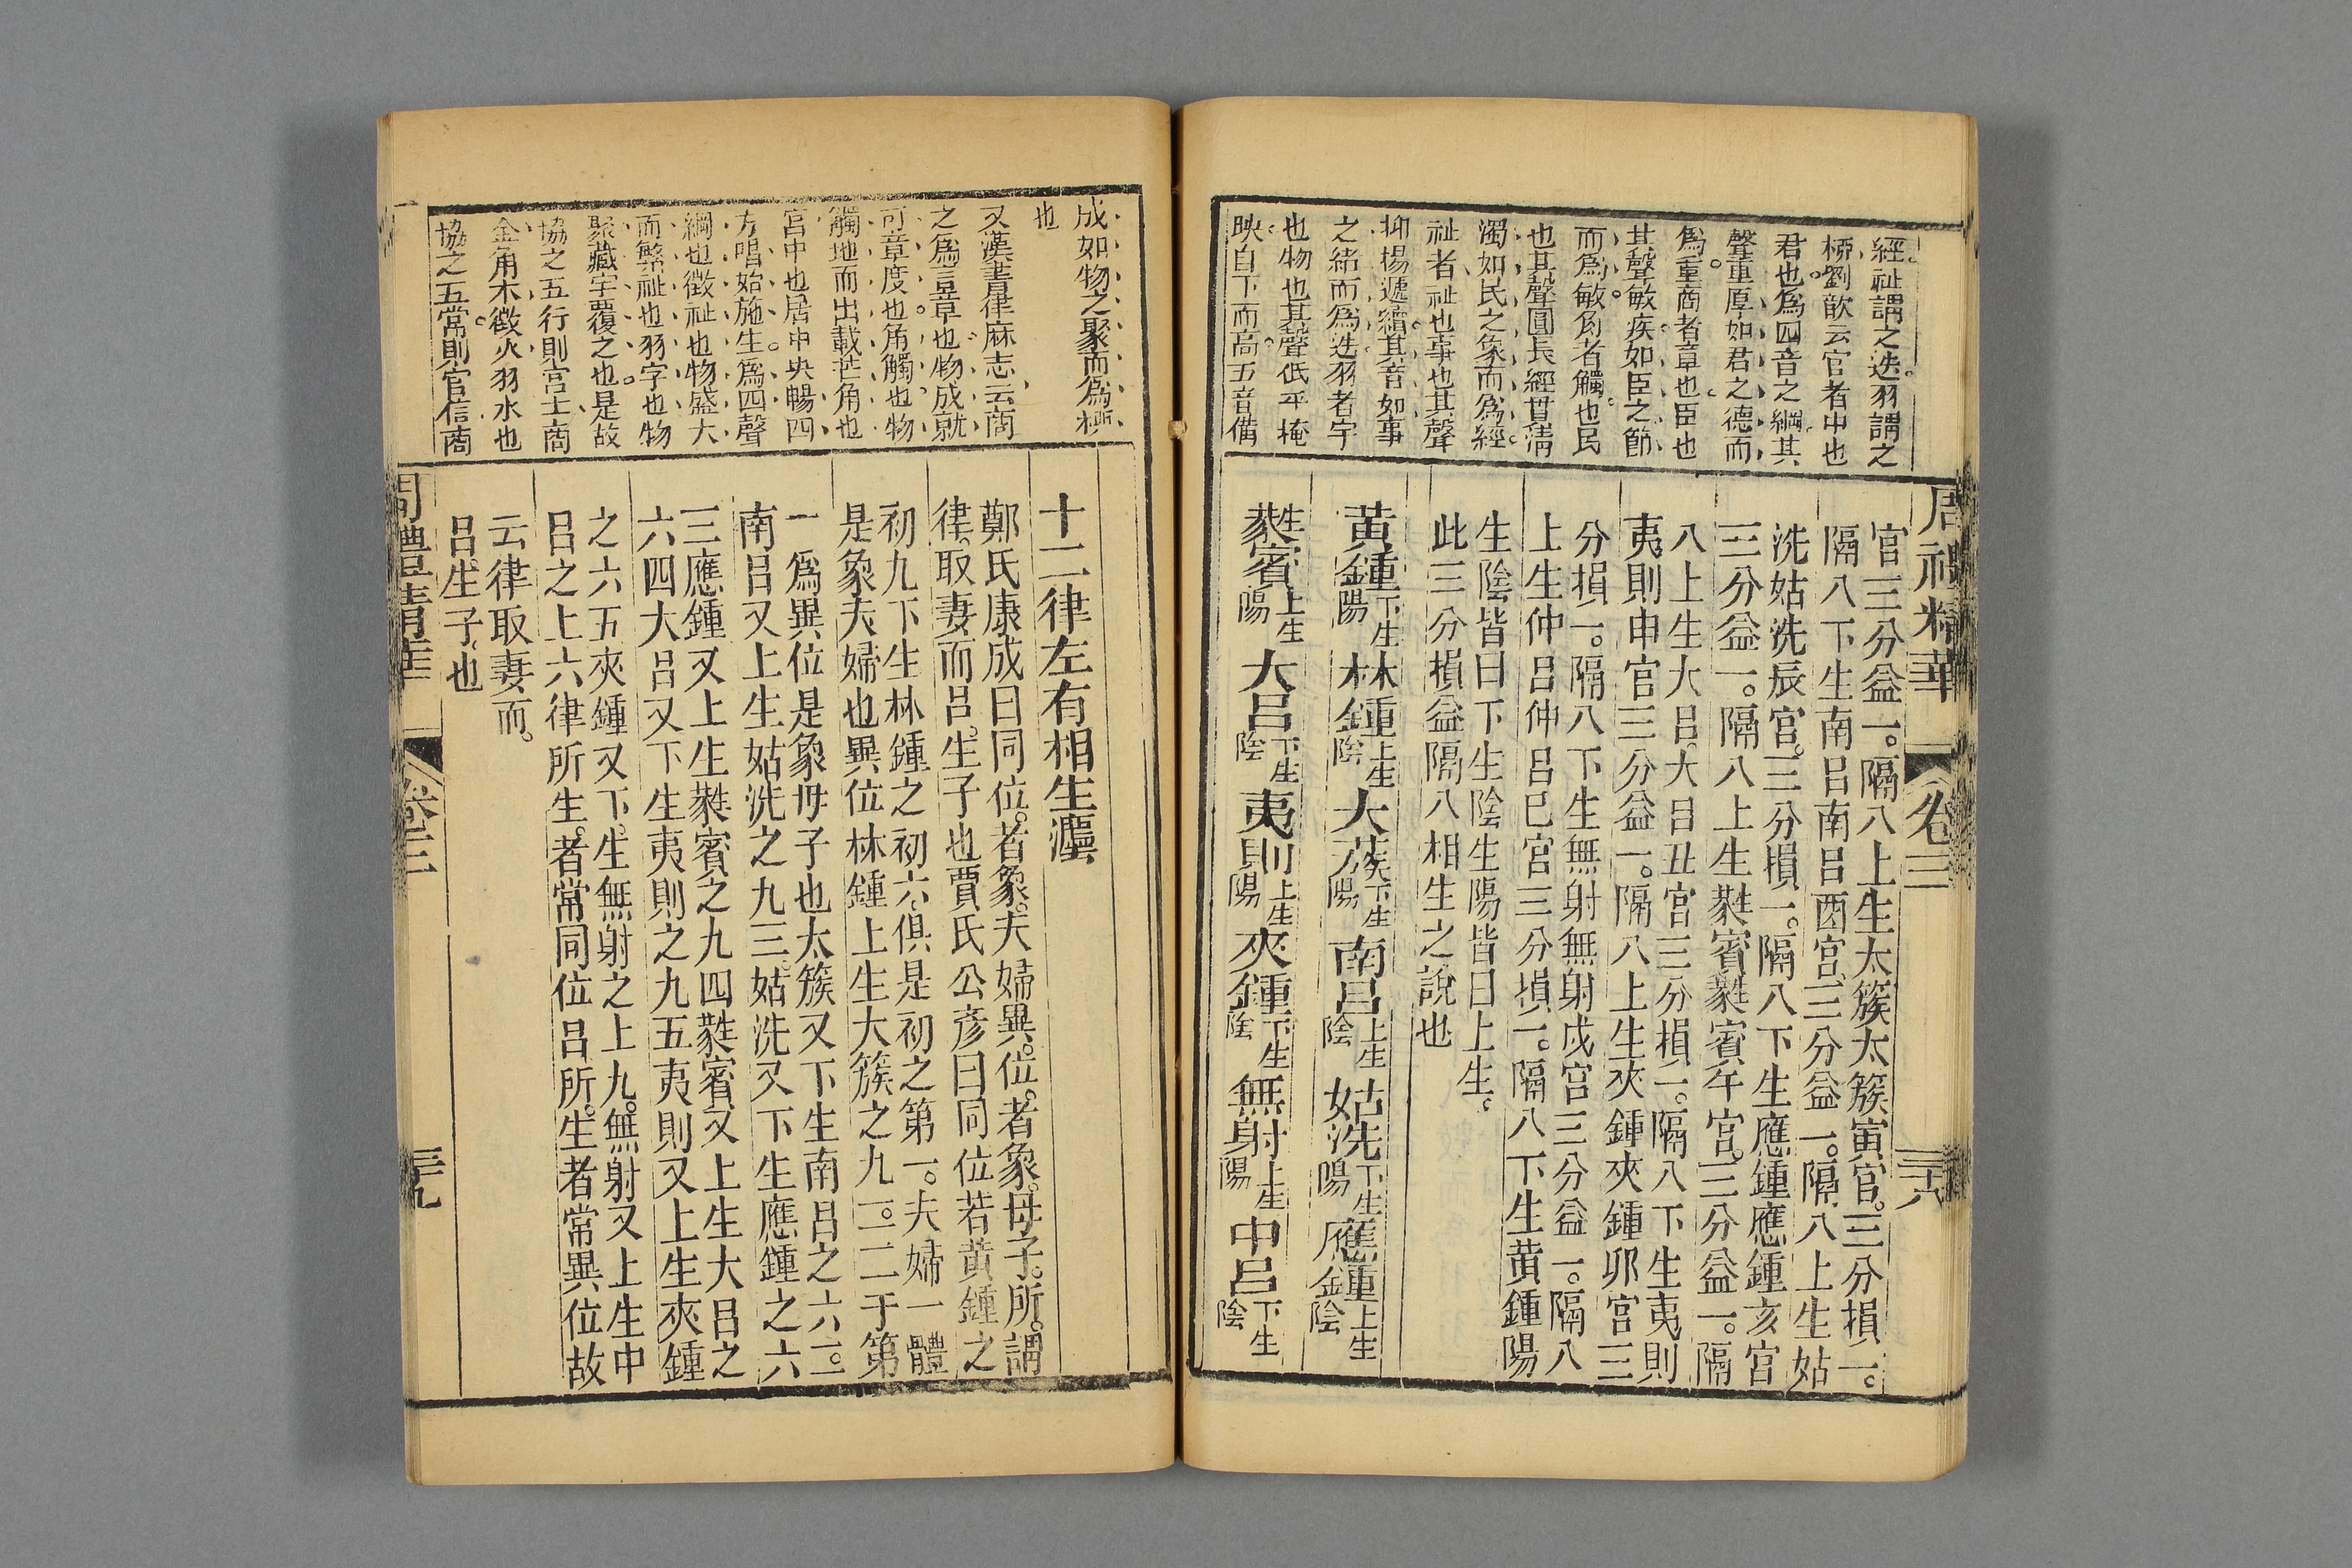 周禮精華
卷三
三十八
經祉謂之迭羽謂之
栁劉歆云宫者中也
君也爲四音之綱其
聲重厚如君之德而
爲重商者章也臣也
其聲敏疾如臣之節
而爲敏角者觸也民
也其聲圓長經貫清
濁如民之象而爲經
祉者祉也事也其聲
抑揚遞續其音如事
之緒而爲迭羽者宇
也物也其聲低平掩
映自下而高五音備
宫三分益一。隔八上生太簇太簇寅宫。三分損一。
隔八下生南吕南吕酉宫。三分益一。隔八上生姑
洗姑洗辰宫。三分損一。隔八下生應鍾應鍾亥宫
三分益一。隔八上生蕤賓蕤賓午宫。三分益一。隔
八上生大吕。大吕丑宫三分損一。隔八下生夷則
夷則申宫三分益一。隔八上生夾鍾夾鍾卯宫三
分損一。隔八下生無射無射戌宫三分益一。隔八
上生仲吕仲吕巳宫三分損一。隔八下生黄鍾陽
生陰皆曰下生陰生陽皆曰上生。
此三分損益隔八相生之說也
黄鍾下生陽林鍾上生陰大蔟下生陽南吕上生陰姑洗下生陽應鍾上生陰
蕤賓上生陽大吕下生陰夷則上生陽夾鍾下生陰無射上生陽中吕下生陰
成如物之聚而爲栁
也
又漢書律厤志云商
之爲言章也物成就
可章度也角觸也物
觸地而出載芒角也
宫中也居中央暢四
方唱始施生爲四聲
綱也徵祉也物盛大
而繁祉也羽宇也物
聚藏宇覆之也是故
協之五行則宫土商
金角木徵火羽水也
協之五常則宫信商
十二律左有相生灋
鄭氏康成曰同位。者象。夫婦異。位。者象。母子。所。謂
律。取妻而吕。生子也賈氏公彦曰同位若黄鍾之
初九下生林鍾之初六俱是初之第一。夫婦一體
是象夫婦也異位林鍾上生大簇之九二。二于第
一爲異位是象母子也太簇又下生南吕之六二。
南吕又上生姑洗之九三。姑洗又下生應鍾之六
三應鍾又上生蕤賓之九四蕤賓又上生大吕之
六四大吕又下生夷則之九五夷則又上生夾鍾
之六五夾鍾又下生無射之上九。無射又上生中
吕之上六律所生。者常同位吕所。生者常異位故
云律取妻而。
吕生子。也
周禮精華
卷三
三十九